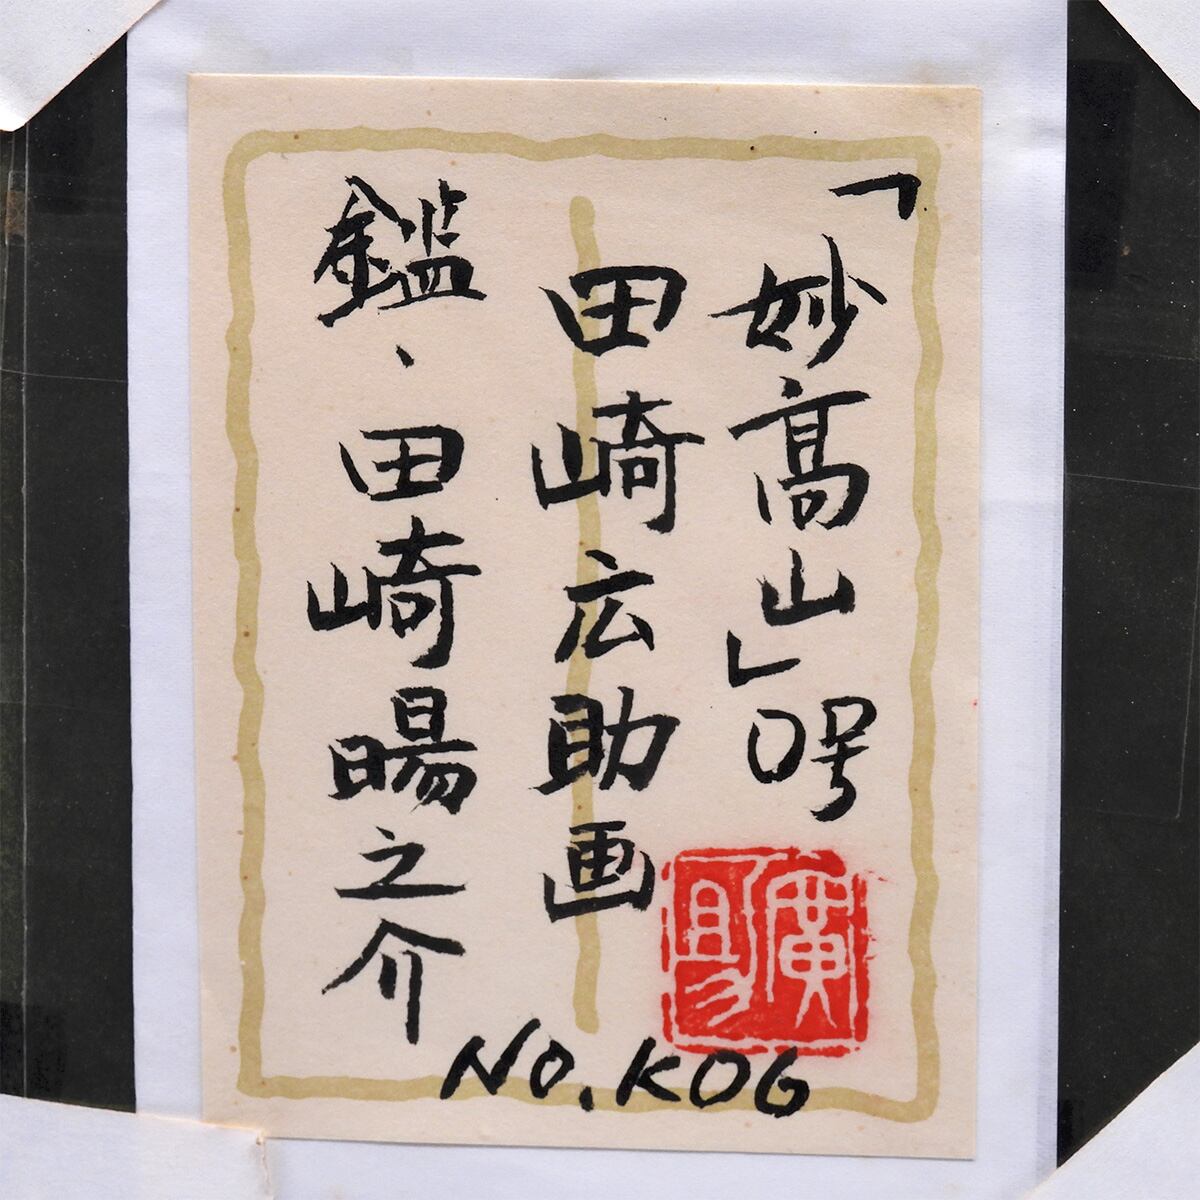 「妙高山」0号
田崎広助画
鑑、田崎暘之介
廣助
NO.K06